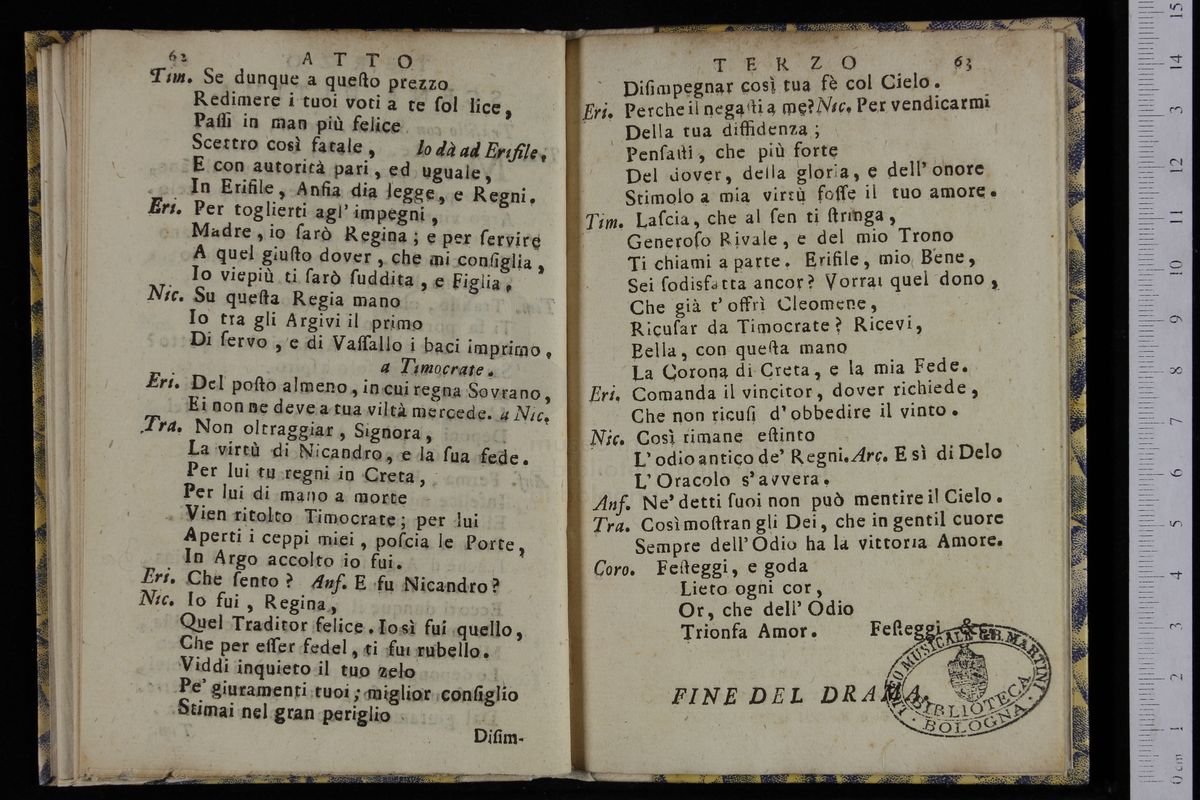 62 ATTO
Tim. Se dunque a queſto prezzo
Redimere i tuoi voti a te ſol lice,
Paſſi in man più felice
Scettro così fatale, lo dà ad Erifile.
E con autorità pari, ed uguale,
In Erifile, Anfia dia legge, e Regni.
Eri. Per toglierti agl' impegni,
Madre, io ſarò Regina; e per ſervire
A quel giuſto dover, che mi conſiglia,
Io viepiù ti ſarò ſuddita, e Figlia.
Nic. Su queſta Regia mano
Io tra gli Argivi il primo
Di ſervo, e di Vaſſallo i baci imprimo.
a Timocrate.
Eri. Del poſto almeno, in cui regna Sovrano,
Ei non ne deve a tua viltà mercede. a Nic.
Tra. Non oltraggiar, Signora,
La virtù di Nicandro, e la ſua fede.
Per lui tu regni in Creta,
Per lui di mano a morte
Vien ritolto Timocrate; per lui
Aperti i ceppi miei, poſcia le Porte,
In Argo accolto io fui.
Eri. Che ſento? Anf. E fu Nicandro?
Nic. Io fui, Regina,
Quel Traditor felice. Io sì fui quello,
Che per eſſer fedel, ti fui rubello.
Viddi inquieto il tuo zelo
Pe' giuramenti tuoi; miglior conſiglio
Stimai nel gran periglio
Diſim-
TERZO 63
Diſimpegnar così tua fè col Cielo.
Eri. Perche il negaſti a me? Nic. Per vendicarmi
Della tua diffidenza;
Penſaiti, che più forte
Del dover, della gloria, e dell' onore
Stimolo a mia virtù foſſe il tuo amore.
Tim. Laſcia, che al ſen ti ſtringa,
Generoſo Rivale, e del mio Trono
Ti chiami a parte. Erifile, mio Bene,
Sei ſodisfatta ancor? Vorrai quel dono,
Che già t' offrì Cleomene,
Ricuſar da Timocrate? Ricevi,
Bella, con queſta mano
La Corona di Creta, e la mia Fede.
Eri. Comanda il vincitor, dover richiede,
Che non ricuſi d' obbedire il vinto.
Nic. Così rimane eſtinto
L' odio antico de' Regni. Arc. E sì di Delo
L' Oracolo s' avvera.
Anf. Ne' detti ſuoi non può mentire il Cielo.
Tra. Così moſtran gli Dei, che in gentil cuore
Sempre dell' Odio ha la vittoria Amore.
Coro. Feſteggi, e goda
Lieto ogni cor,
Or, che dell' Odio
Trionfa Amor. Feſteggi &c.
FINE DEL DRAMA.
LICEO MUSICALE G.B. MARTINI
BIBLIOTECA
BOLOGNA
0 cm 1 2 3 4 5 6 7 8 9 10 11 12 13 14 15